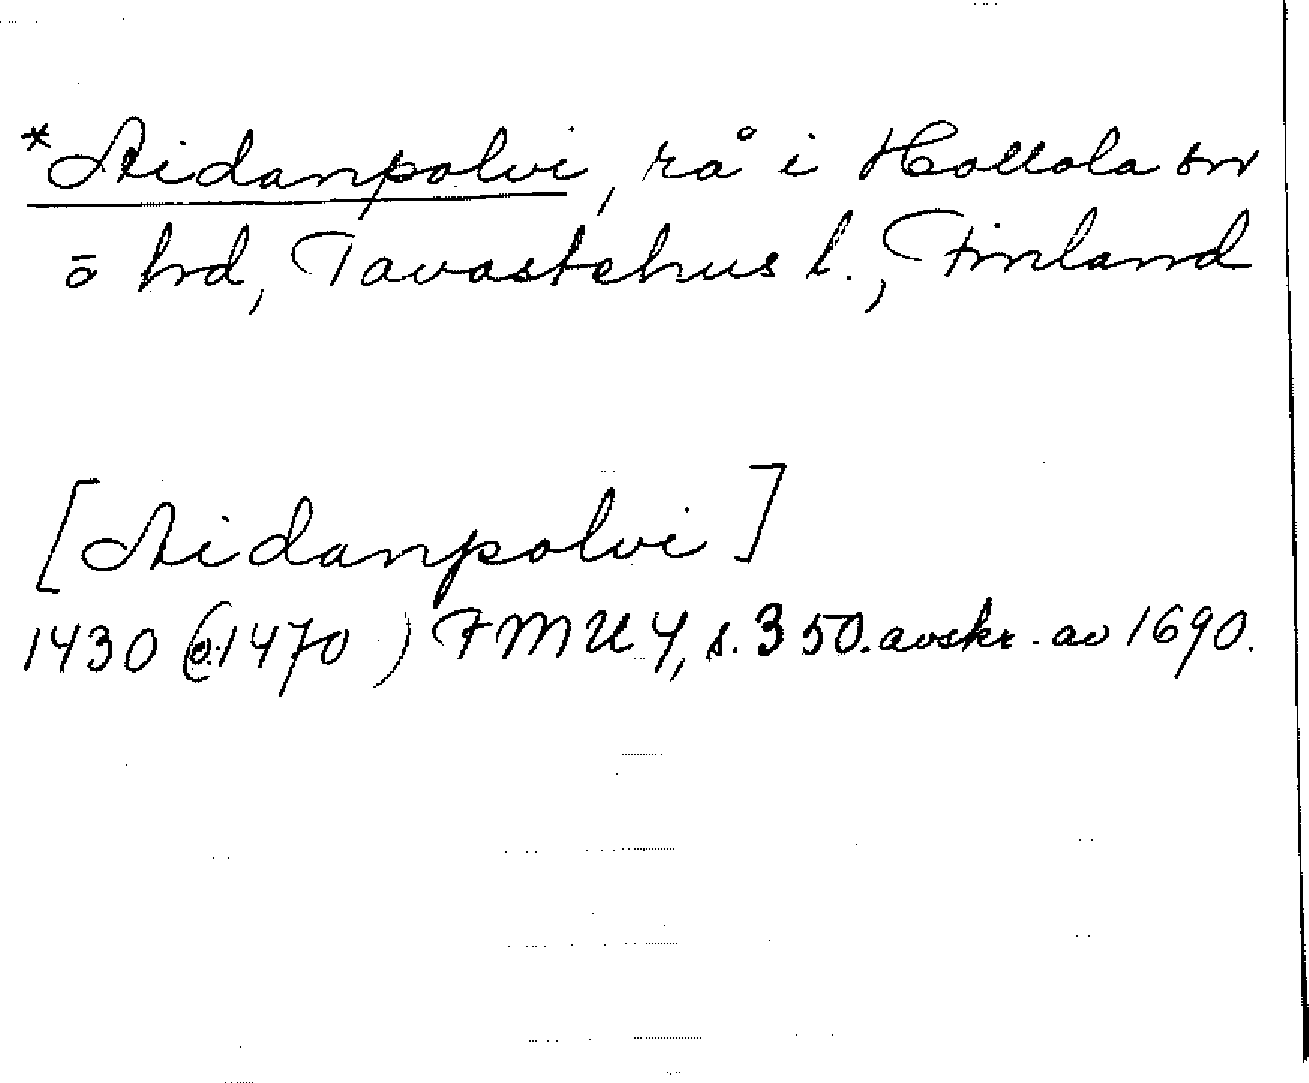 *Aidanpolvi, rå i Hollola sn
o hd, Tavastehus l., Finland
[Aidanpolvi]
1430 (@1470) FMU 4, s. 350. avskr. av 1690.